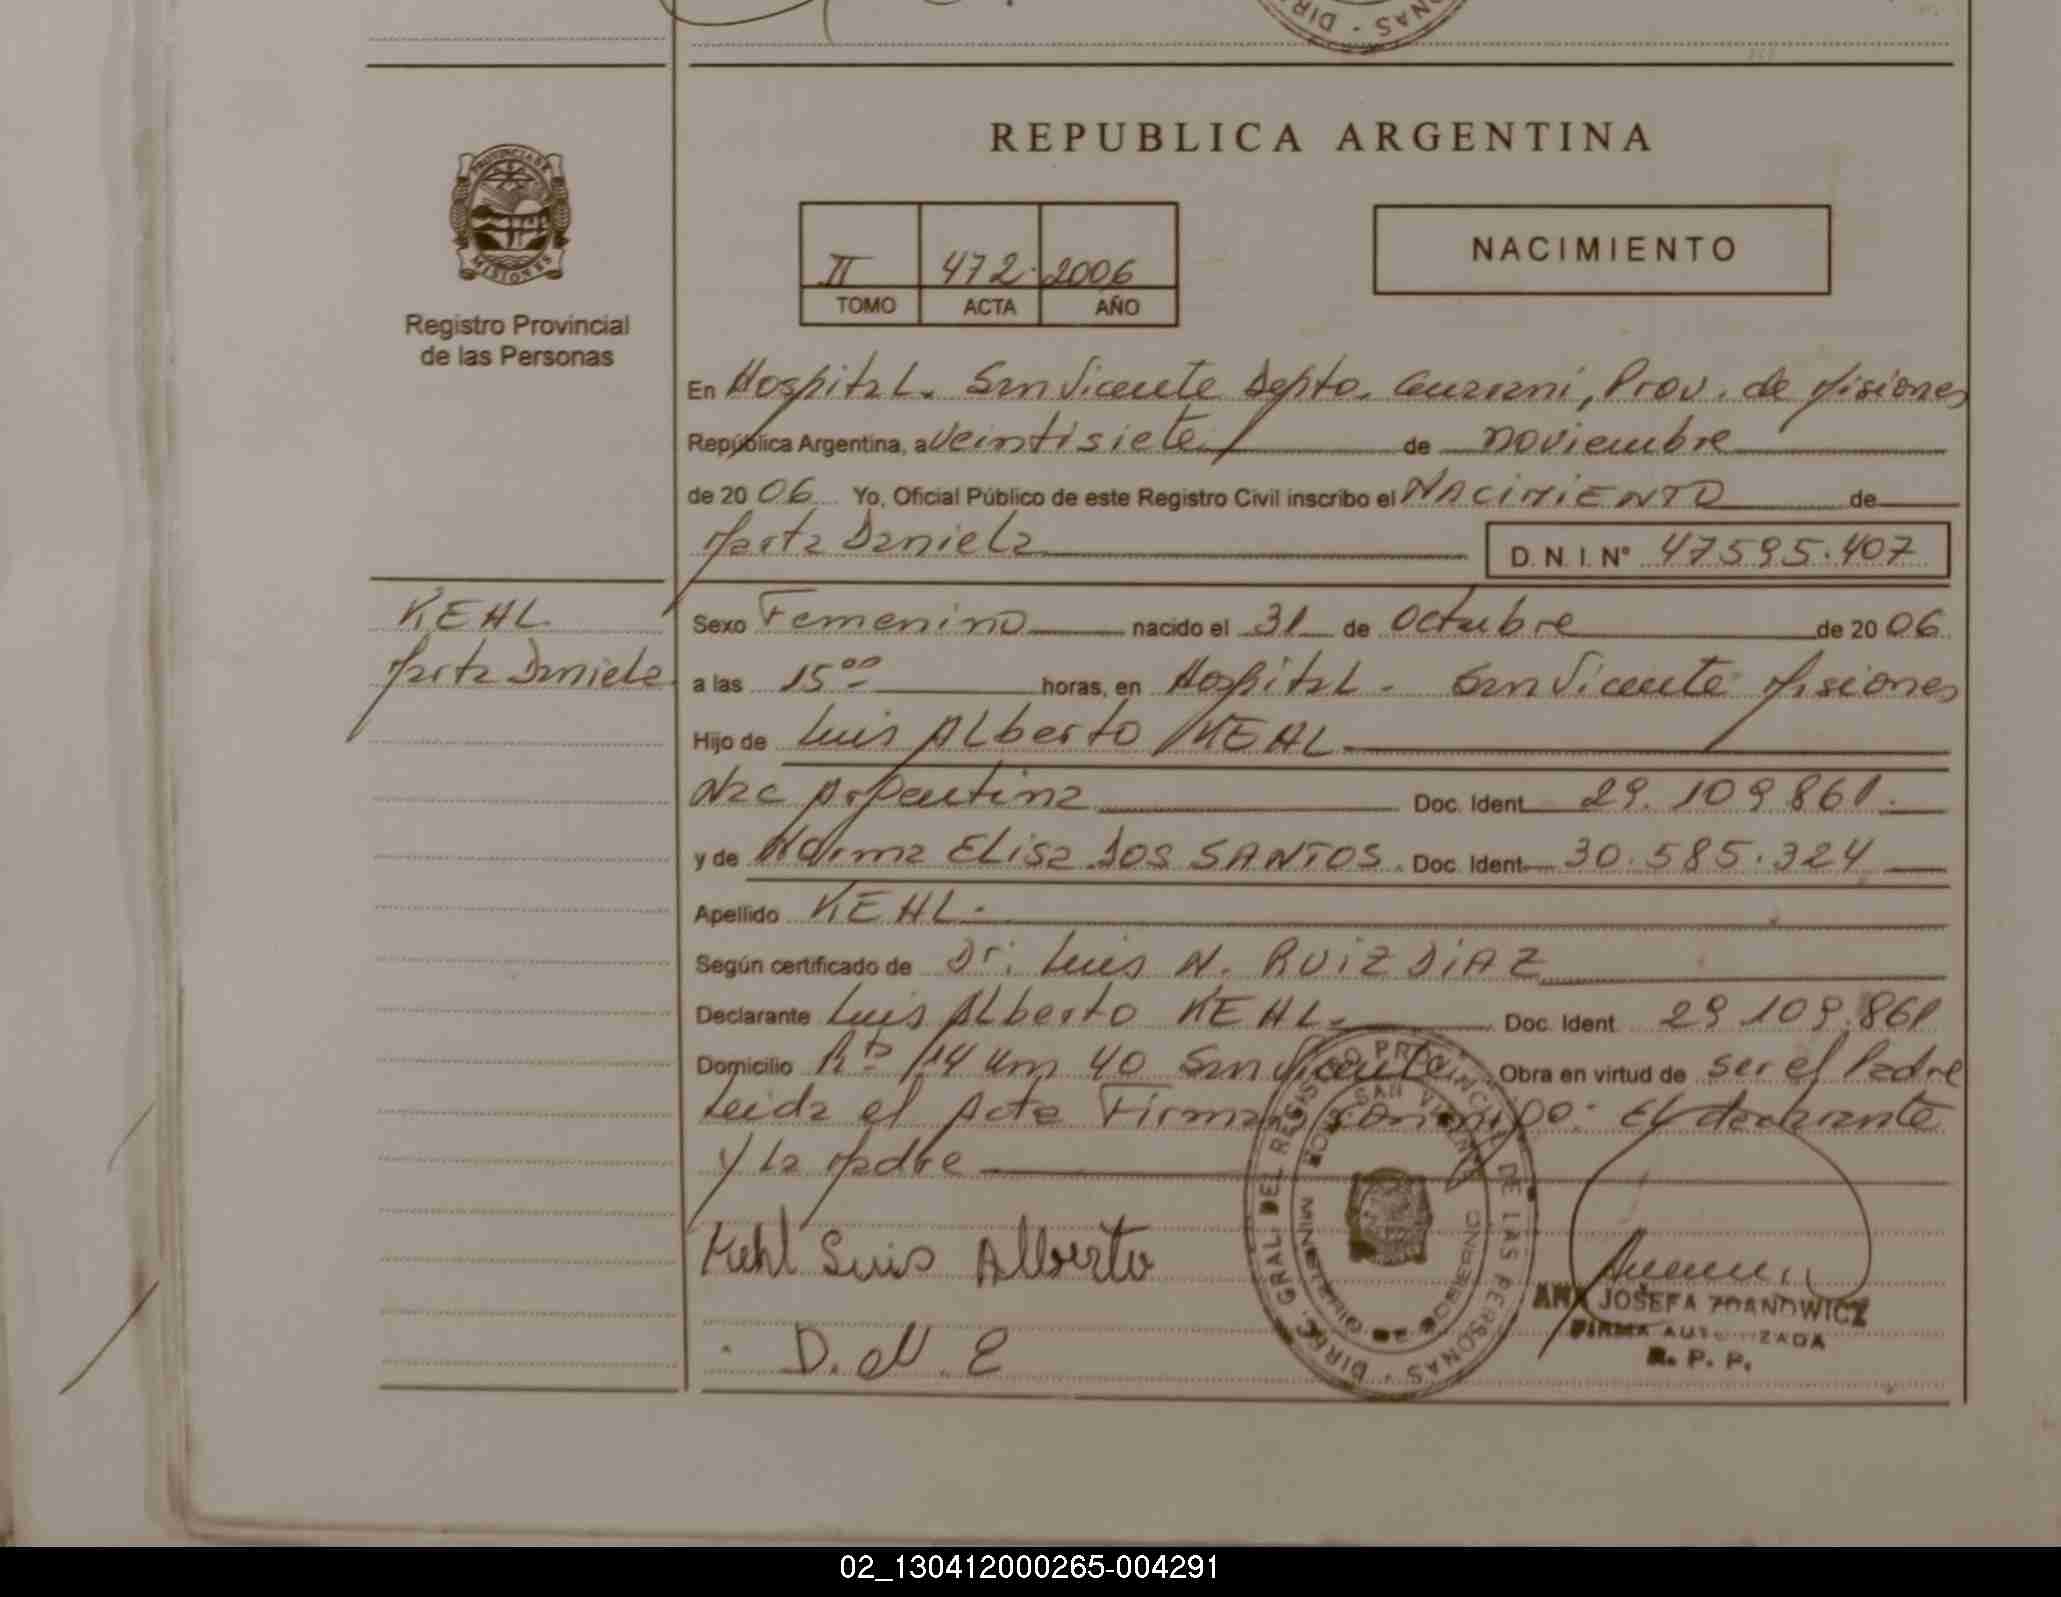 REPUBLICA ARGENTINA
PROVINCIA DE
MISIONES
Registro Provincial
de las Personas
II 472. 2006
TOMO ACTA AÑO
NACIMIENTO
En Hospital. San Vicente Depto. Guarani, Prov. de Misiones
República Argentina, a Veintisiete de noviembre
de 20 06 Yo, Oficial Público de este Registro Civil inscribo el NACIMIENTO de
Marta Daniela
D. N. I. N° 47595.407
KEHL
Marta Daniela
Sexo Femenino nacido el 31 de Octubre de 20 06
a las 15 00 horas, en Hospital - San Vicente Misiones
Hijo de Luis Alberto KEHL
Nac Argentina Doc. Ident 29.109861.
y de Norma Elisa DOS SANTOS. Doc. Ident 30.585.324
Apellido KEHL.
Según certificado de Dr. Luis N. RUIZ DIAZ
Declarante Luis Alberto KEHL. Doc. Ident. 29109.861
Domicilio Rta 14 Km 40 San Vicente Obra en virtud de ser el Padre
Leida el Acta Firman conmigo: El declarante
y La Madre
Kehl Luis Alberto
D. N. E
DIREC. GRAL. DEL REGISTRO PROVINCIAL DE LAS PERSONAS
SAN VICENTE
MINISTERIO DE GOBIERNO
ANA JOSEFA ZDANOWICZ
FIRMA AUTORIZADA
R. P. P.
02_130412000265-004291